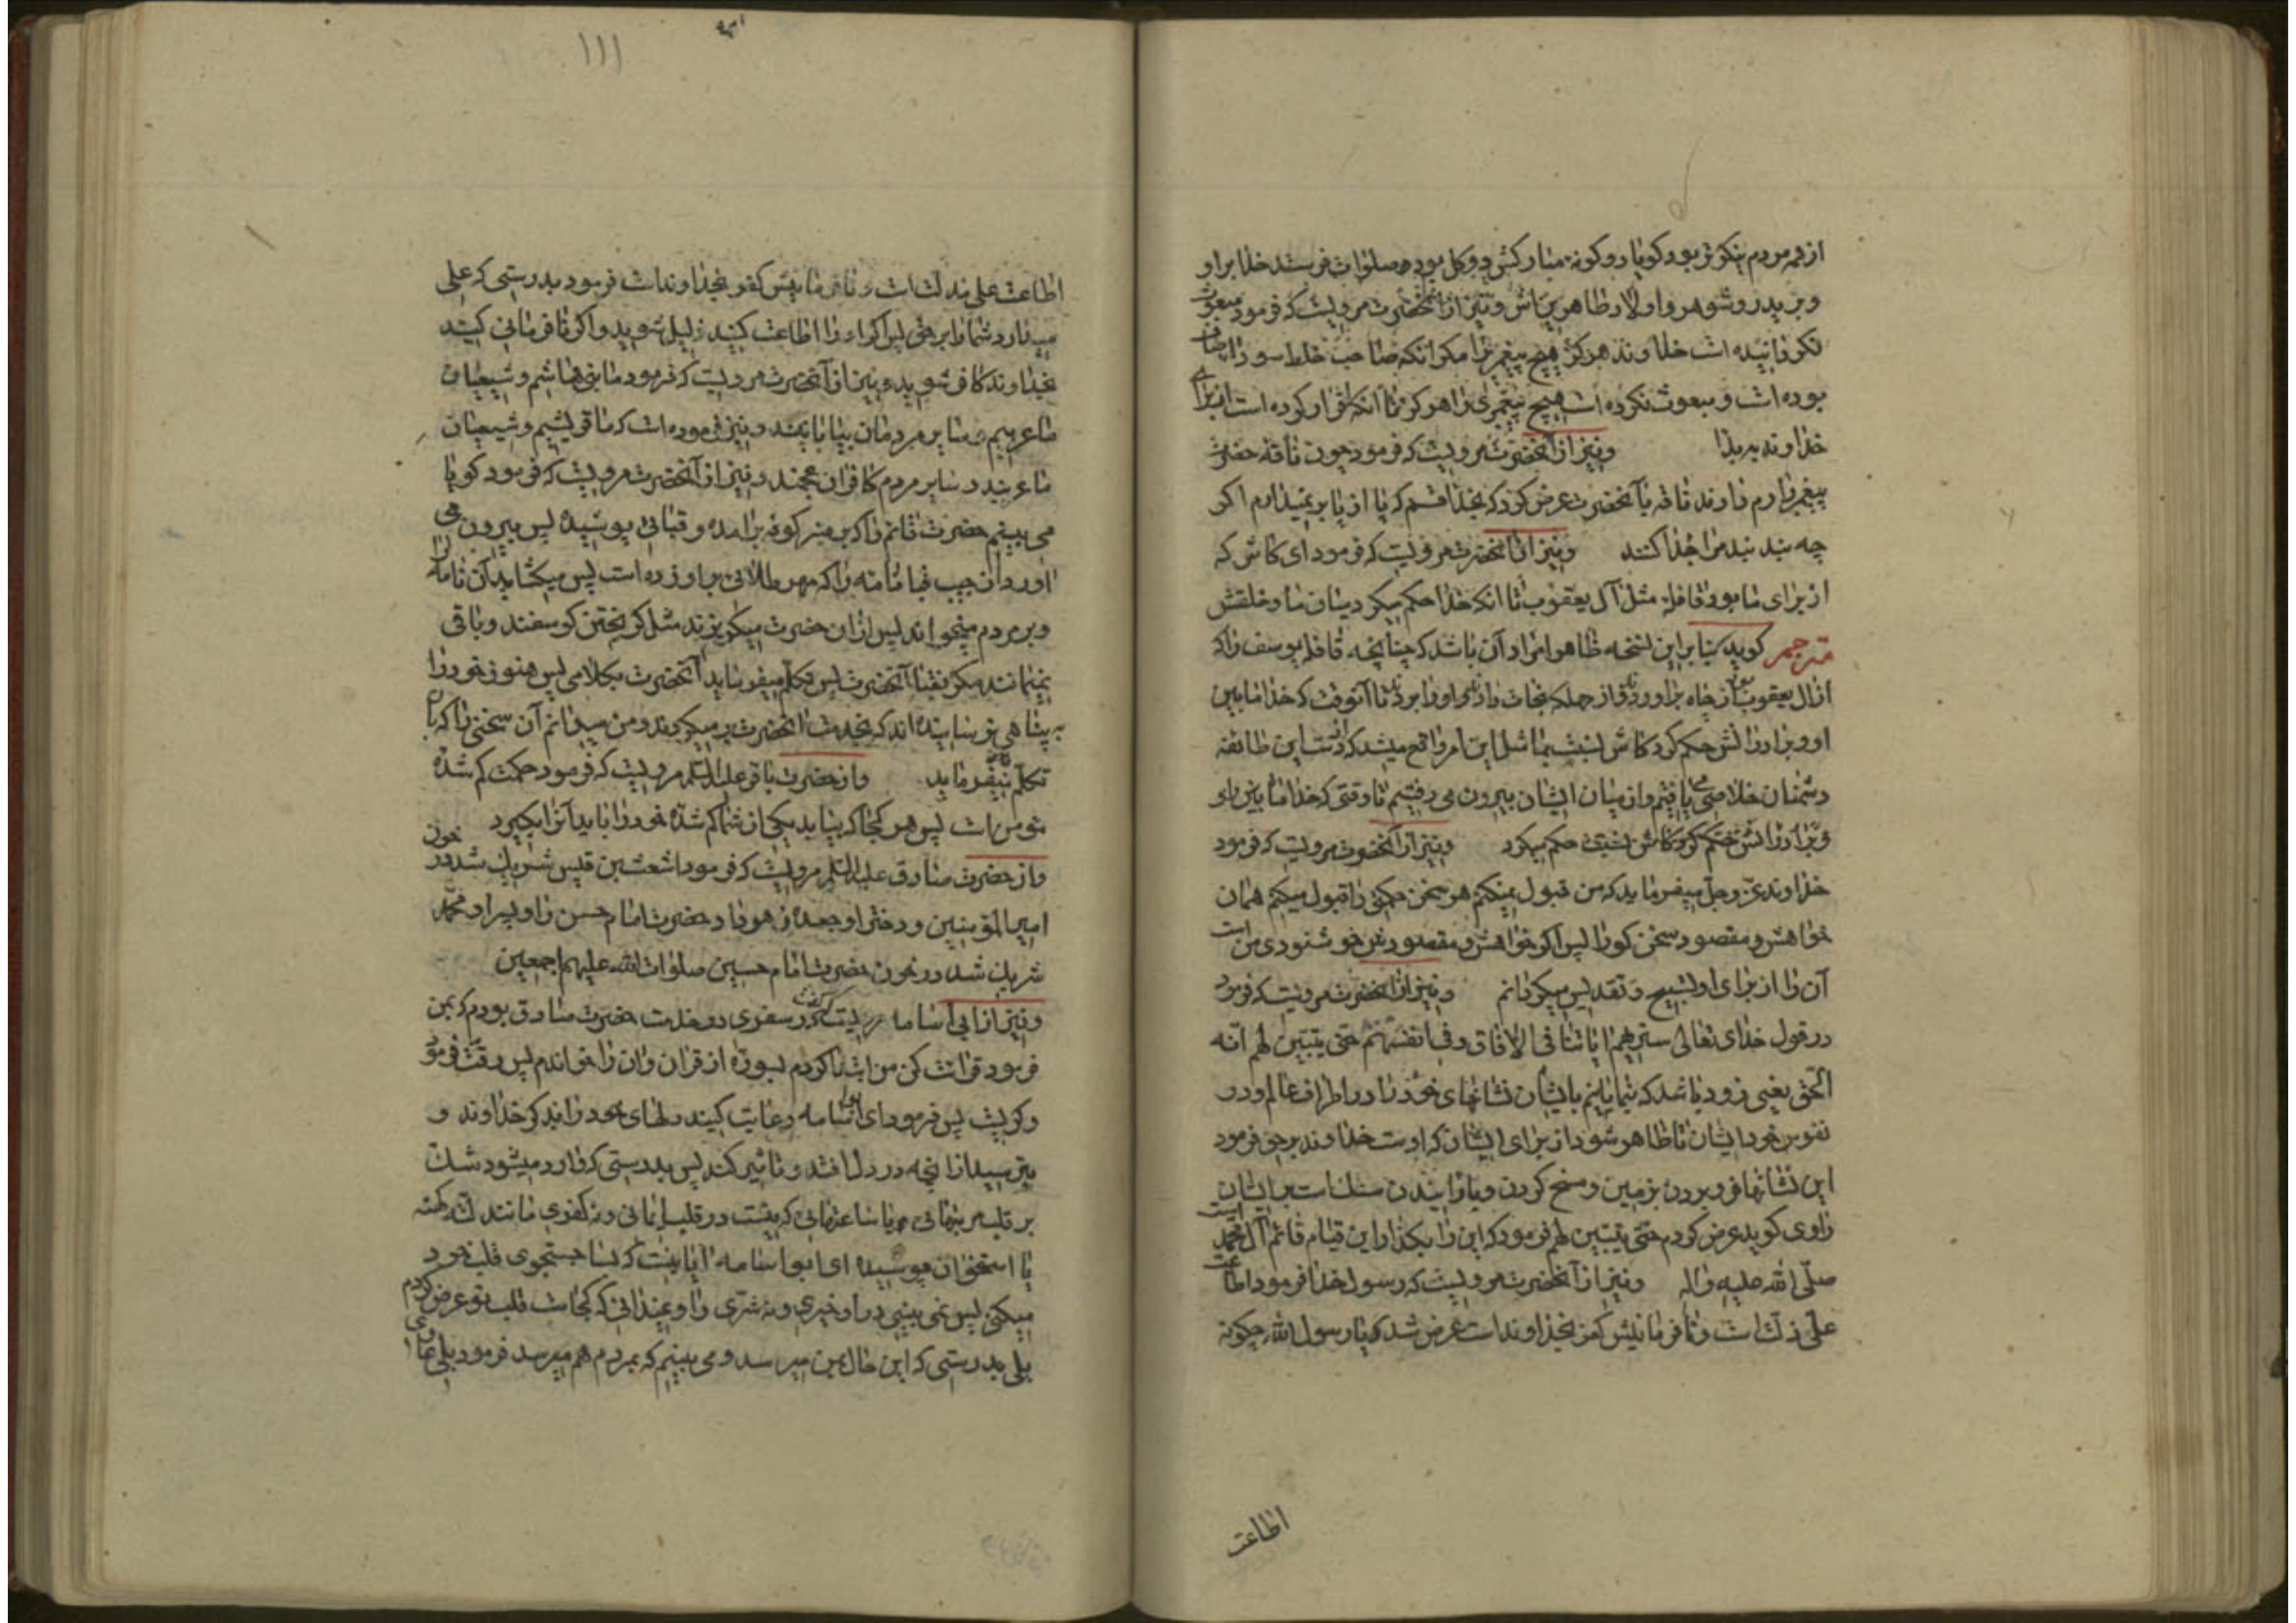 از همه مردم نیکوتر بود کویا دو کونه مبارکش دو کل بوده صلوات فرستد خدا بر او
و بر پدر و شوهر و اولاد طاهرینش و نیز از آنحضرت مرویست که فرمود مبعوث
نکردانیده است خداوند هرکز هیچ پیغمبر را مکر انکه صاحب خلط سودا صاف
بوده است و مبعوث نکرده است هیچ پیغمبری را هرکز تا انکه اقرار کرده است از برای
خداوند به بدا و نیز از آنحضرت مرویست که فرمود چون ناقه حضرت
پیغمبر را رم دادند ناقه بآنحضرت عرض کرد که بخدا قسم که پا از پا بر نمیدارم اکر
چه بند بند مرا جدا کنند و نیز از آنحضرت مرویست که فرمود ای کاش که
از برای ما بود قافله مثل آل یعقوب تا انکه خدا حکم میکرد میان ما و خلقش
مترجم کوید بنا بر این نسخه ظاهرا مراد آن باشد که چنانچه قافله یوسف را که
از آل یعقوب بود از چاه برآوردند و از جمله نجات دادند و او را بردند تا آنوقت که خدا مابین
او و برادرانش حکم کرد کاش نسبت بما مثل این امر واقع میشد که از دست این طائفه
دشمنان خلاصی می یافتیم و از میان ایشان بیرون می رفتیم تا وقتی که خدا مابین او
و برادرانش حکم کرد کاش نسبت حکم میکرد و نیز از آنحضرت مرویست که فرمود
خداوند عز و جل میفرماید که من قبول نمیکنم هر سخن حکمتی را قبول میکنم همان
خواهش و مقصود سخن کو را پس اکر خواهش و مقصودش خوشنودی من است
آن را از برای او تسبیح و تقدیس میکردانم و نیز از آنحضرت مرویست که فرمود
در قول خدای تعالی سنریهم ایاتنا فی الافاق و فی انفسهم حتی یتبین لهم انه
الحق یعنی زود باشد که بنمایانیم بایشان نشانهای خود را در اطراف عالم و در
نفوس خود ایشان تا ظاهر شود از برای ایشان که اوست خداوند بر حق فرمود
این نشانها فرو بردن بزمین و مسخ کردن و بارانیدن سنک است بر ایشان
راوی کوید عرض کردم حتی یتبین لهم فرمود که این را بکذار این قیام قائم آل محمد است
صلی الله علیه واله و نیز از آنحضرت مرویست که رسول خدا فرمود اطاعت
علی ذلت است و نافرمانیش کفر بخداوند است عرض شد که یا رسول الله چکونه
اطاعت
۱۱۱
اطاعت علی مذلت است و نافرمانیش کفر بخداوند است فرمود بدرستی که علی
میدارد شما را بر حق پس اکر او را اطاعت کنید ذلیل شوید و اکر نافرمانی کنید
بخداوند کافر شوید و نیز از آنحضرت مرویست که فرمود ما بنی هاشم و شیعیان
ما عربیم و سایر مردمان بیابانیند و نیز فرموده است که ما قریشیم و شیعیان
ما عربند و سایر مردم کافران عجمند و نیز از آنحضرت مرویست که فرمود کویا
می بینم حضرت قائم را که بر منبر کوفه برآمده و قبائی پوشیده پس بیرون می
آورد از جیب قبا نامه را که مهر طلائی بر او زده است پس میکشاید آن نامه را
و بر مردم میخواند پس از آن حضرت میکریزند مثل کریختن کوسفند و باقی
نمیمانند مکر نقبا آنحضرت پس تکلم میفرماید آنحضرت بکلامی پس هنوز خود را
به پناهی نرسانیده اند که بخدمت آنحضرت بر میکردند و من میدانم آن سخنی را که بآن
تکلم میفرماید و از حضرت باقر علیه السلام مرویست که فرمود حکمت کم شده
مؤمن است پس هر کجا که بیابد یکی از شما کم شده خود را باید آنرا بکیرد
و از حضرت صادق علیه السلام مرویست که فرمود اشعث بن قیس شریک شد در خون
امیرالمؤمنین و دختر او جعده زهر داد حضرت امام حسن را و پسر او محمد
شریک شد در خون حضرت امام حسین صلوات الله علیهم اجمعین
و نیز از ابی اسامه مرویست که گفت در سفری در خدمت حضرت صادق بودم که بمن
فرمود قرائت کن من ابتدا کردم بسوره از قران و آن را خواندم پس رقت فرمود
و کریست پس فرمود ای ابو اسامه رعایت کنید دلهای خود را بذکر خداوند و
بترسید از انچه در دل افتد و تاثیر کند پس بدرستی که وارد میشود شک
بر قلب در بنهانی و یا ساعتهائی که نیست در قلب ایمانی و نه کفری مانند لته کهنه
یا استخوان پوسیده ای ابو اسامه آیا نیست که بسا جستجوی قلب خود
میکنی پس نمی بینی در او خیری و نه شری را و نمیدانی که کجاست قلب تو عرض کردم
بلی بدرستی که این حال بمن میرسد و می بینم که بمردم هم میرسد فرمود بلی